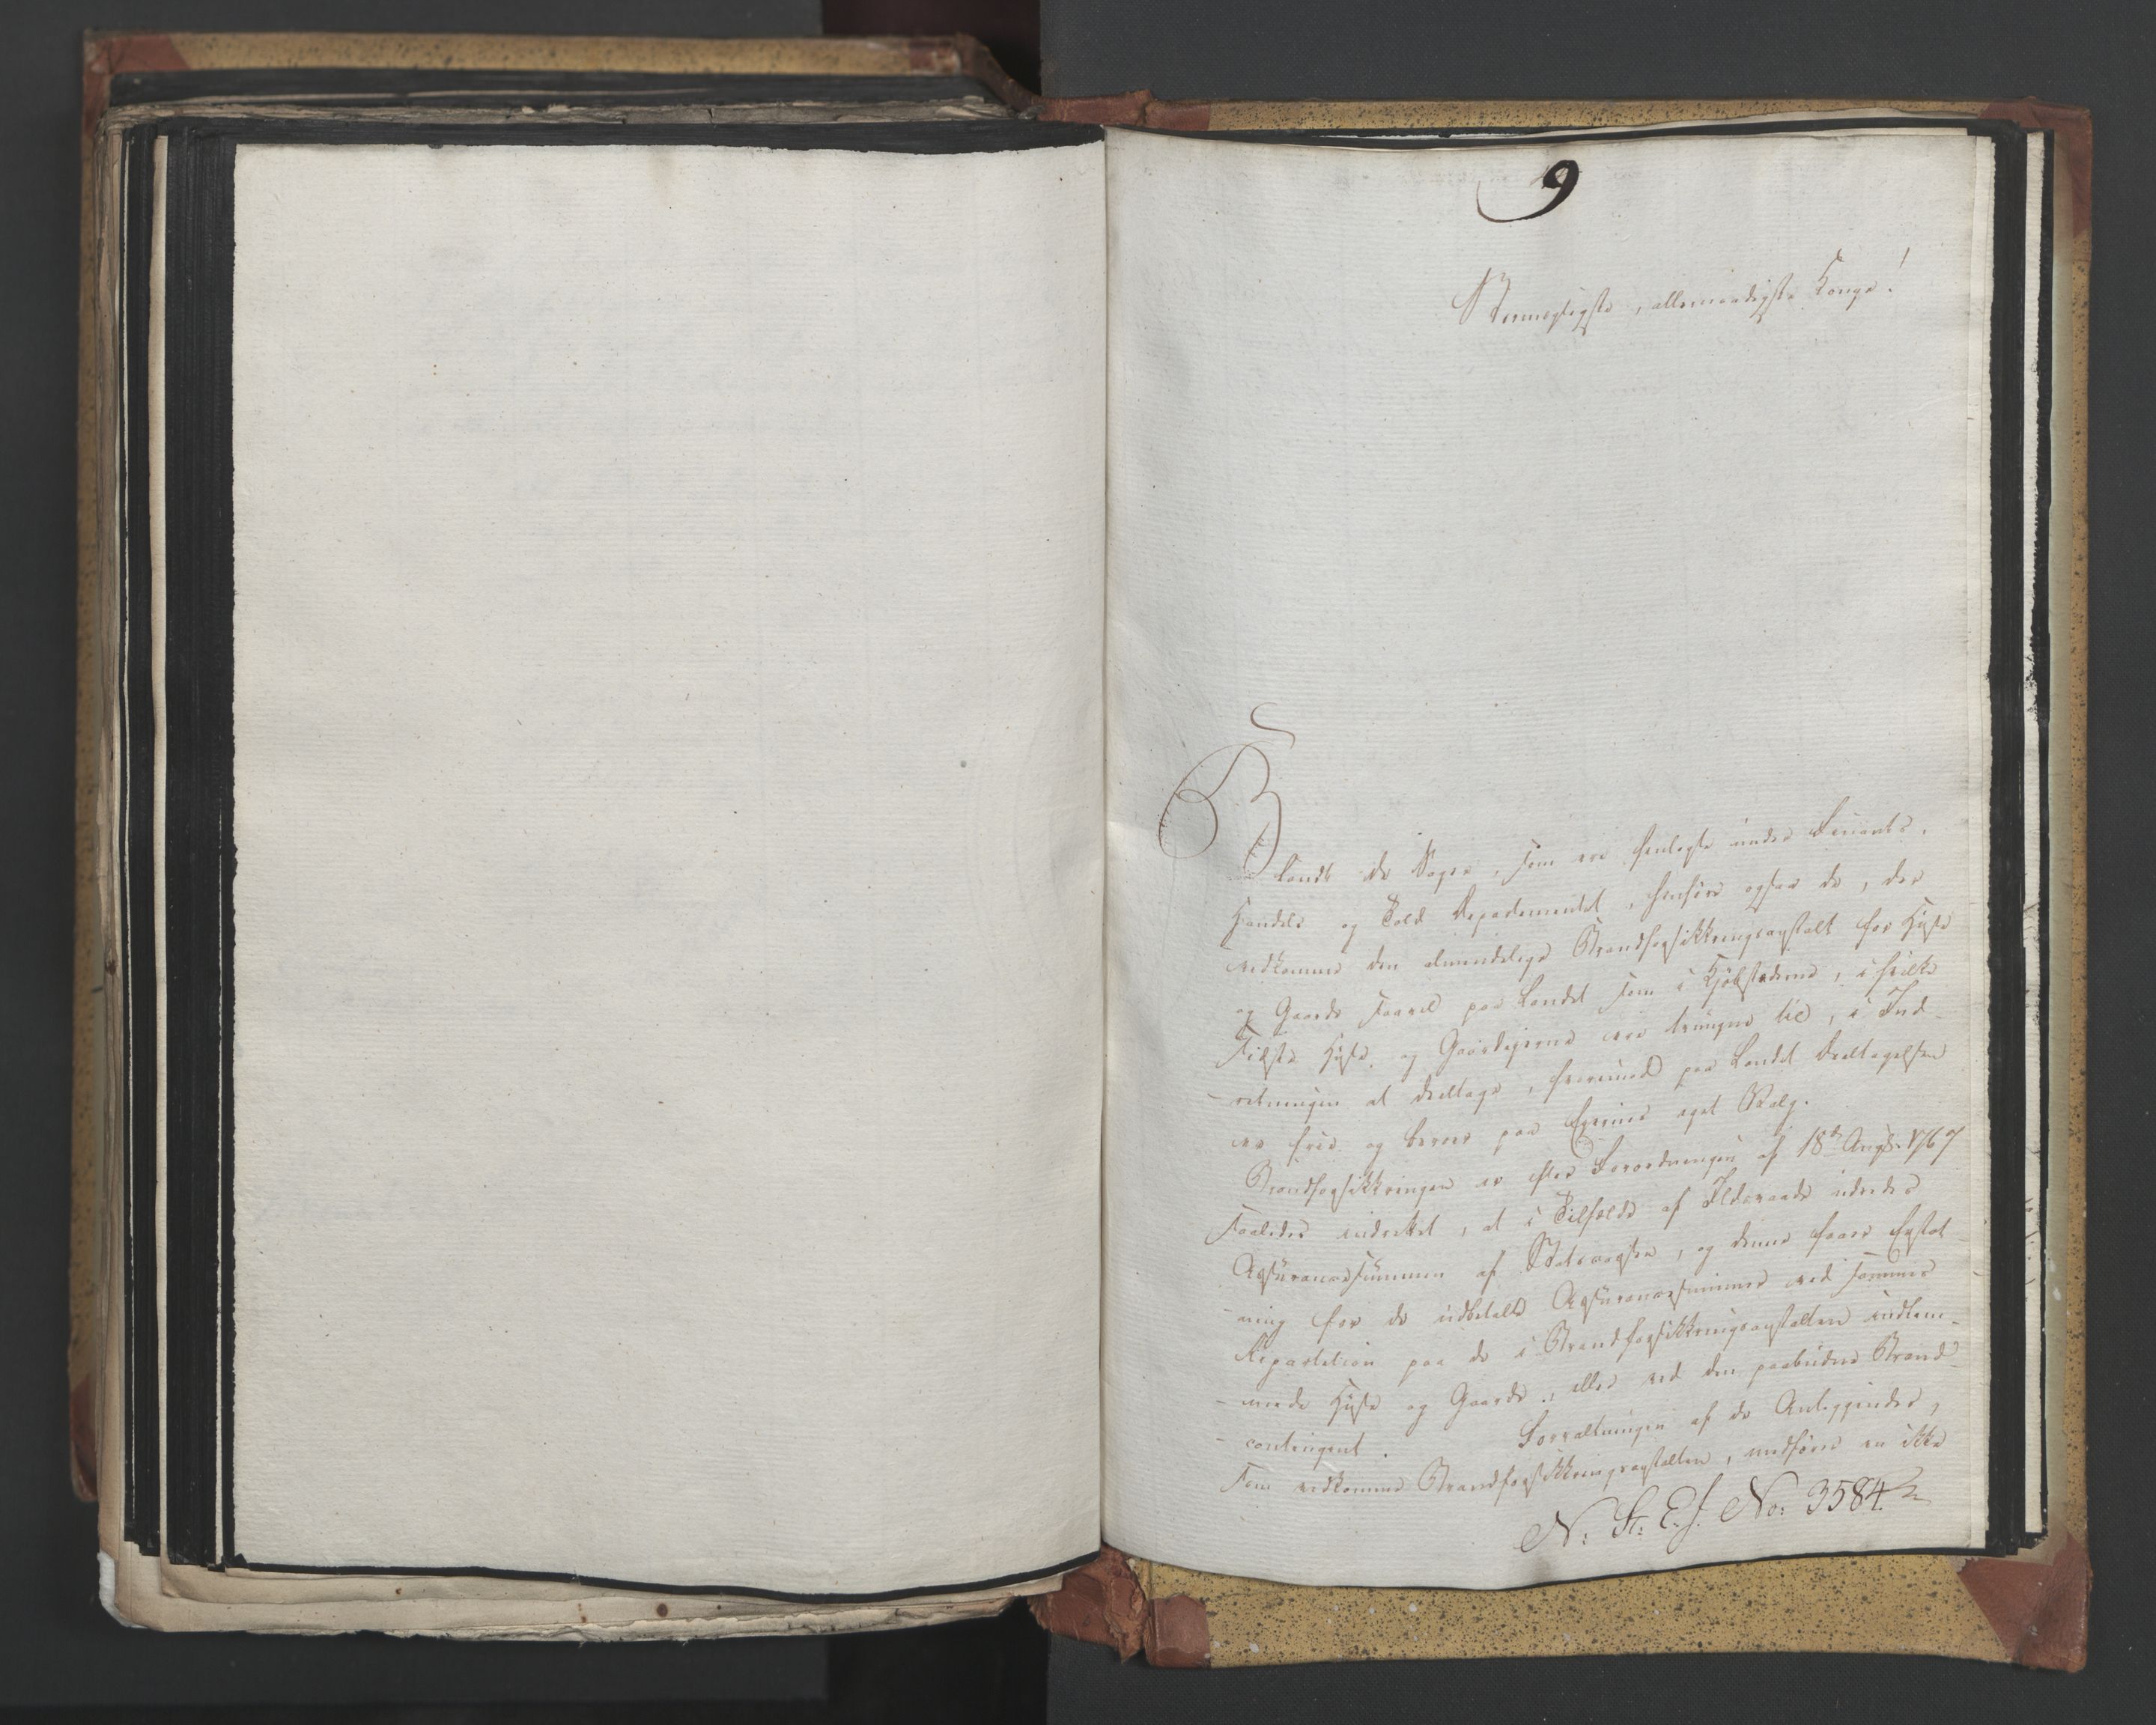 9
Stormægtigste, allernaadigste Konge!
Blandt de Sager, som ere henlagte under Finants-
Handels og Told Departementet, henhøre ogsaa de, der
vedkomme den almindelige Brandforsikkringsanstalt for Huse
og Gaarde saavel paa Landet som i Kjøbstæderne, i hvilke
sidste Huse- og Gaardejerne ere tvungne til, i Ind-
retningen at deeltage, hvorimod paa Landet Deeltagelsen
er frie og beroer paa Ejernes eget Valg.
Brandforsikkringen er efter Forordningen af 18de Augt. 1767
saaledes indrettet, at i Tilfælde af Ildsvaade udredes
Assurancesummen af Statscassen, og denne faaer Erstat-
ning for de udbetalte Assurancesummer ved sammes
Repartition paa de i Brandforsikkringsanstalten indlem-
mede Huse og Gaarde, eller ved den paabudne Brand-
contingent. Forvaltningen af de Anliggender,
som vedkomme Brandforsikkringsanstalten, medføre en ikke
N: St: E. J. No: 3584.